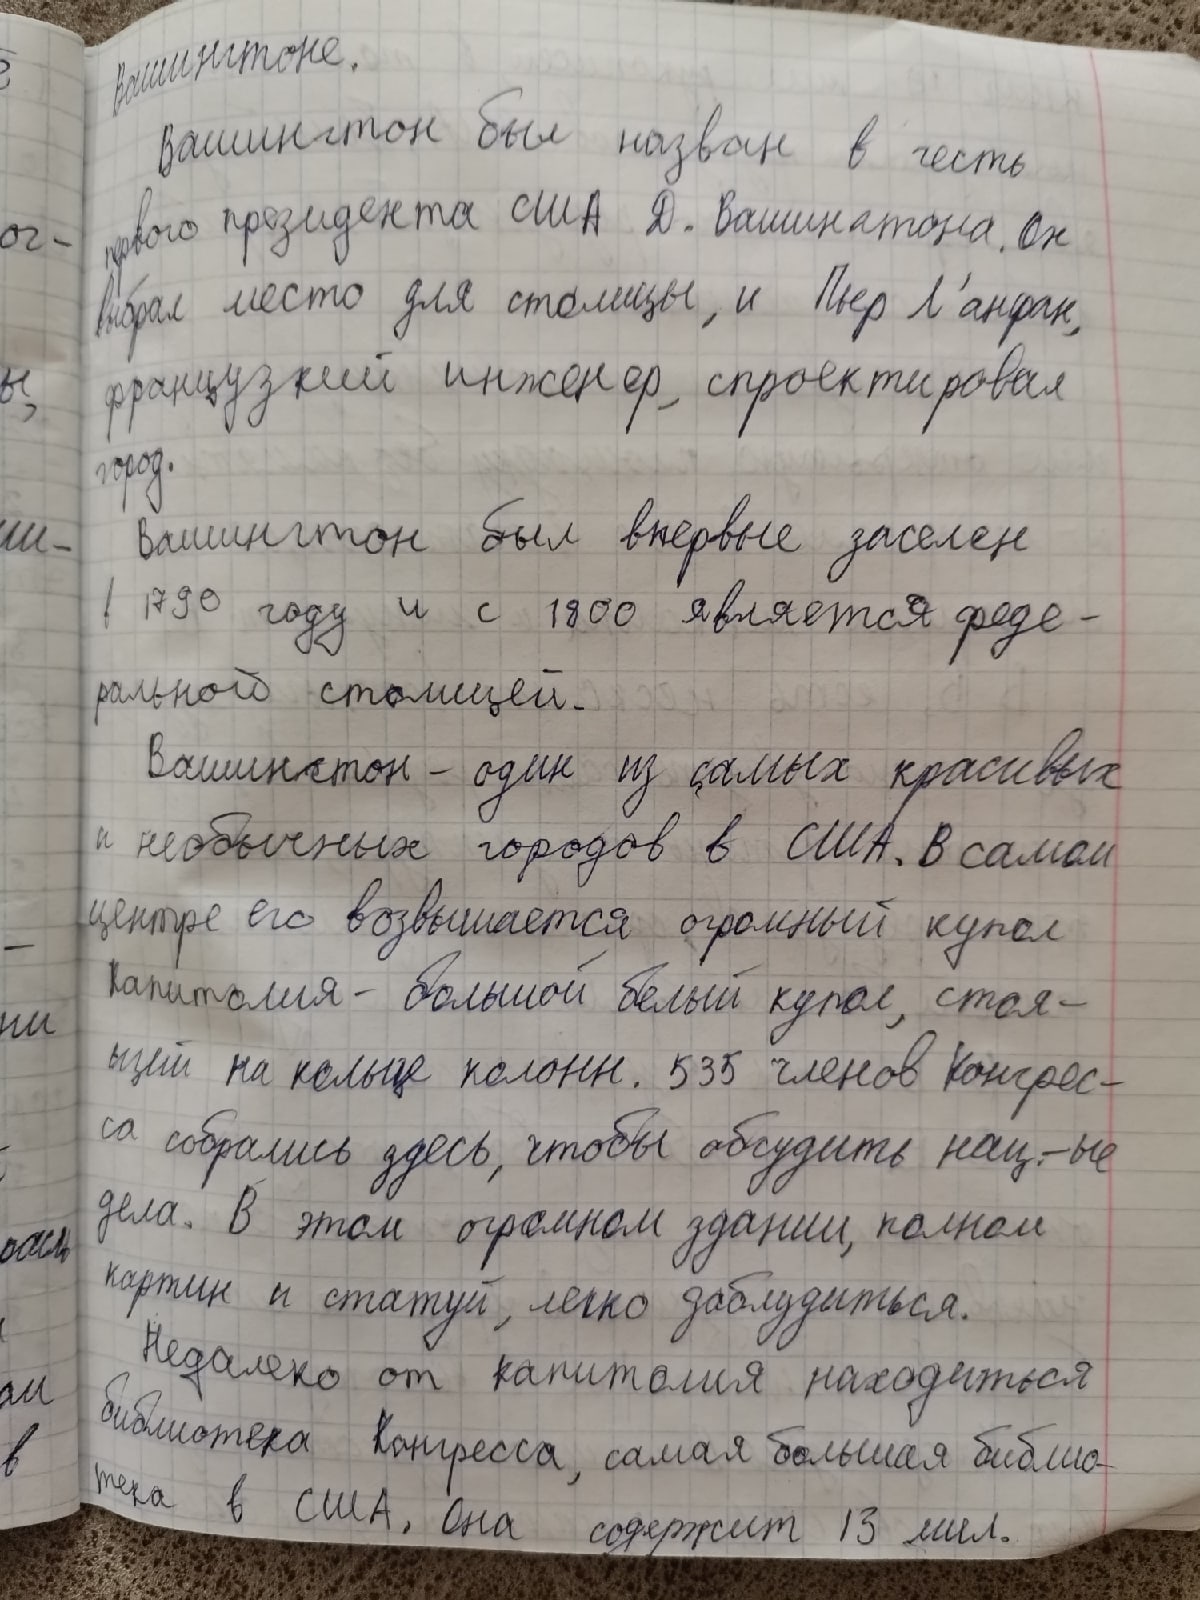 Вашингтоне.
Вашингтон был назван в честь
первого президента США Д. Вашингтона. Он
выбрал место для столицы, и Пьер Л'анфан,
французский инженер, спроектировал
город.
Вашингтон был впервые заселен
в 1790 году и с 1800 является феде-
ральной столицей.
Вашингтон - один из самых красивых
и необычных городов в США. В самом
центре его возвышается огромный купол
Капитолия - большой белый купол, стоя-
щей на кольце колонн. 535 членов Конгрес-
са собрались здесь, чтобы обсудить нац.-ые
дела. В этом огромном здании, полном
картин и статуй, легко заблудиться.
Недалеко от капитолия находиться
библиотека Конгресса, самая большая библио-
тека в США. Она содержит 13 мил.